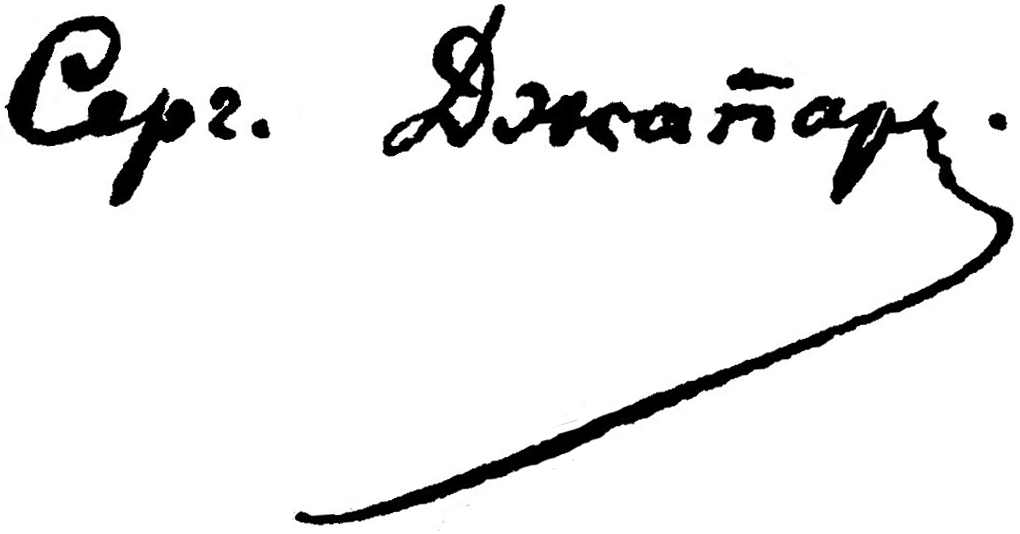 Серг. Джапар.